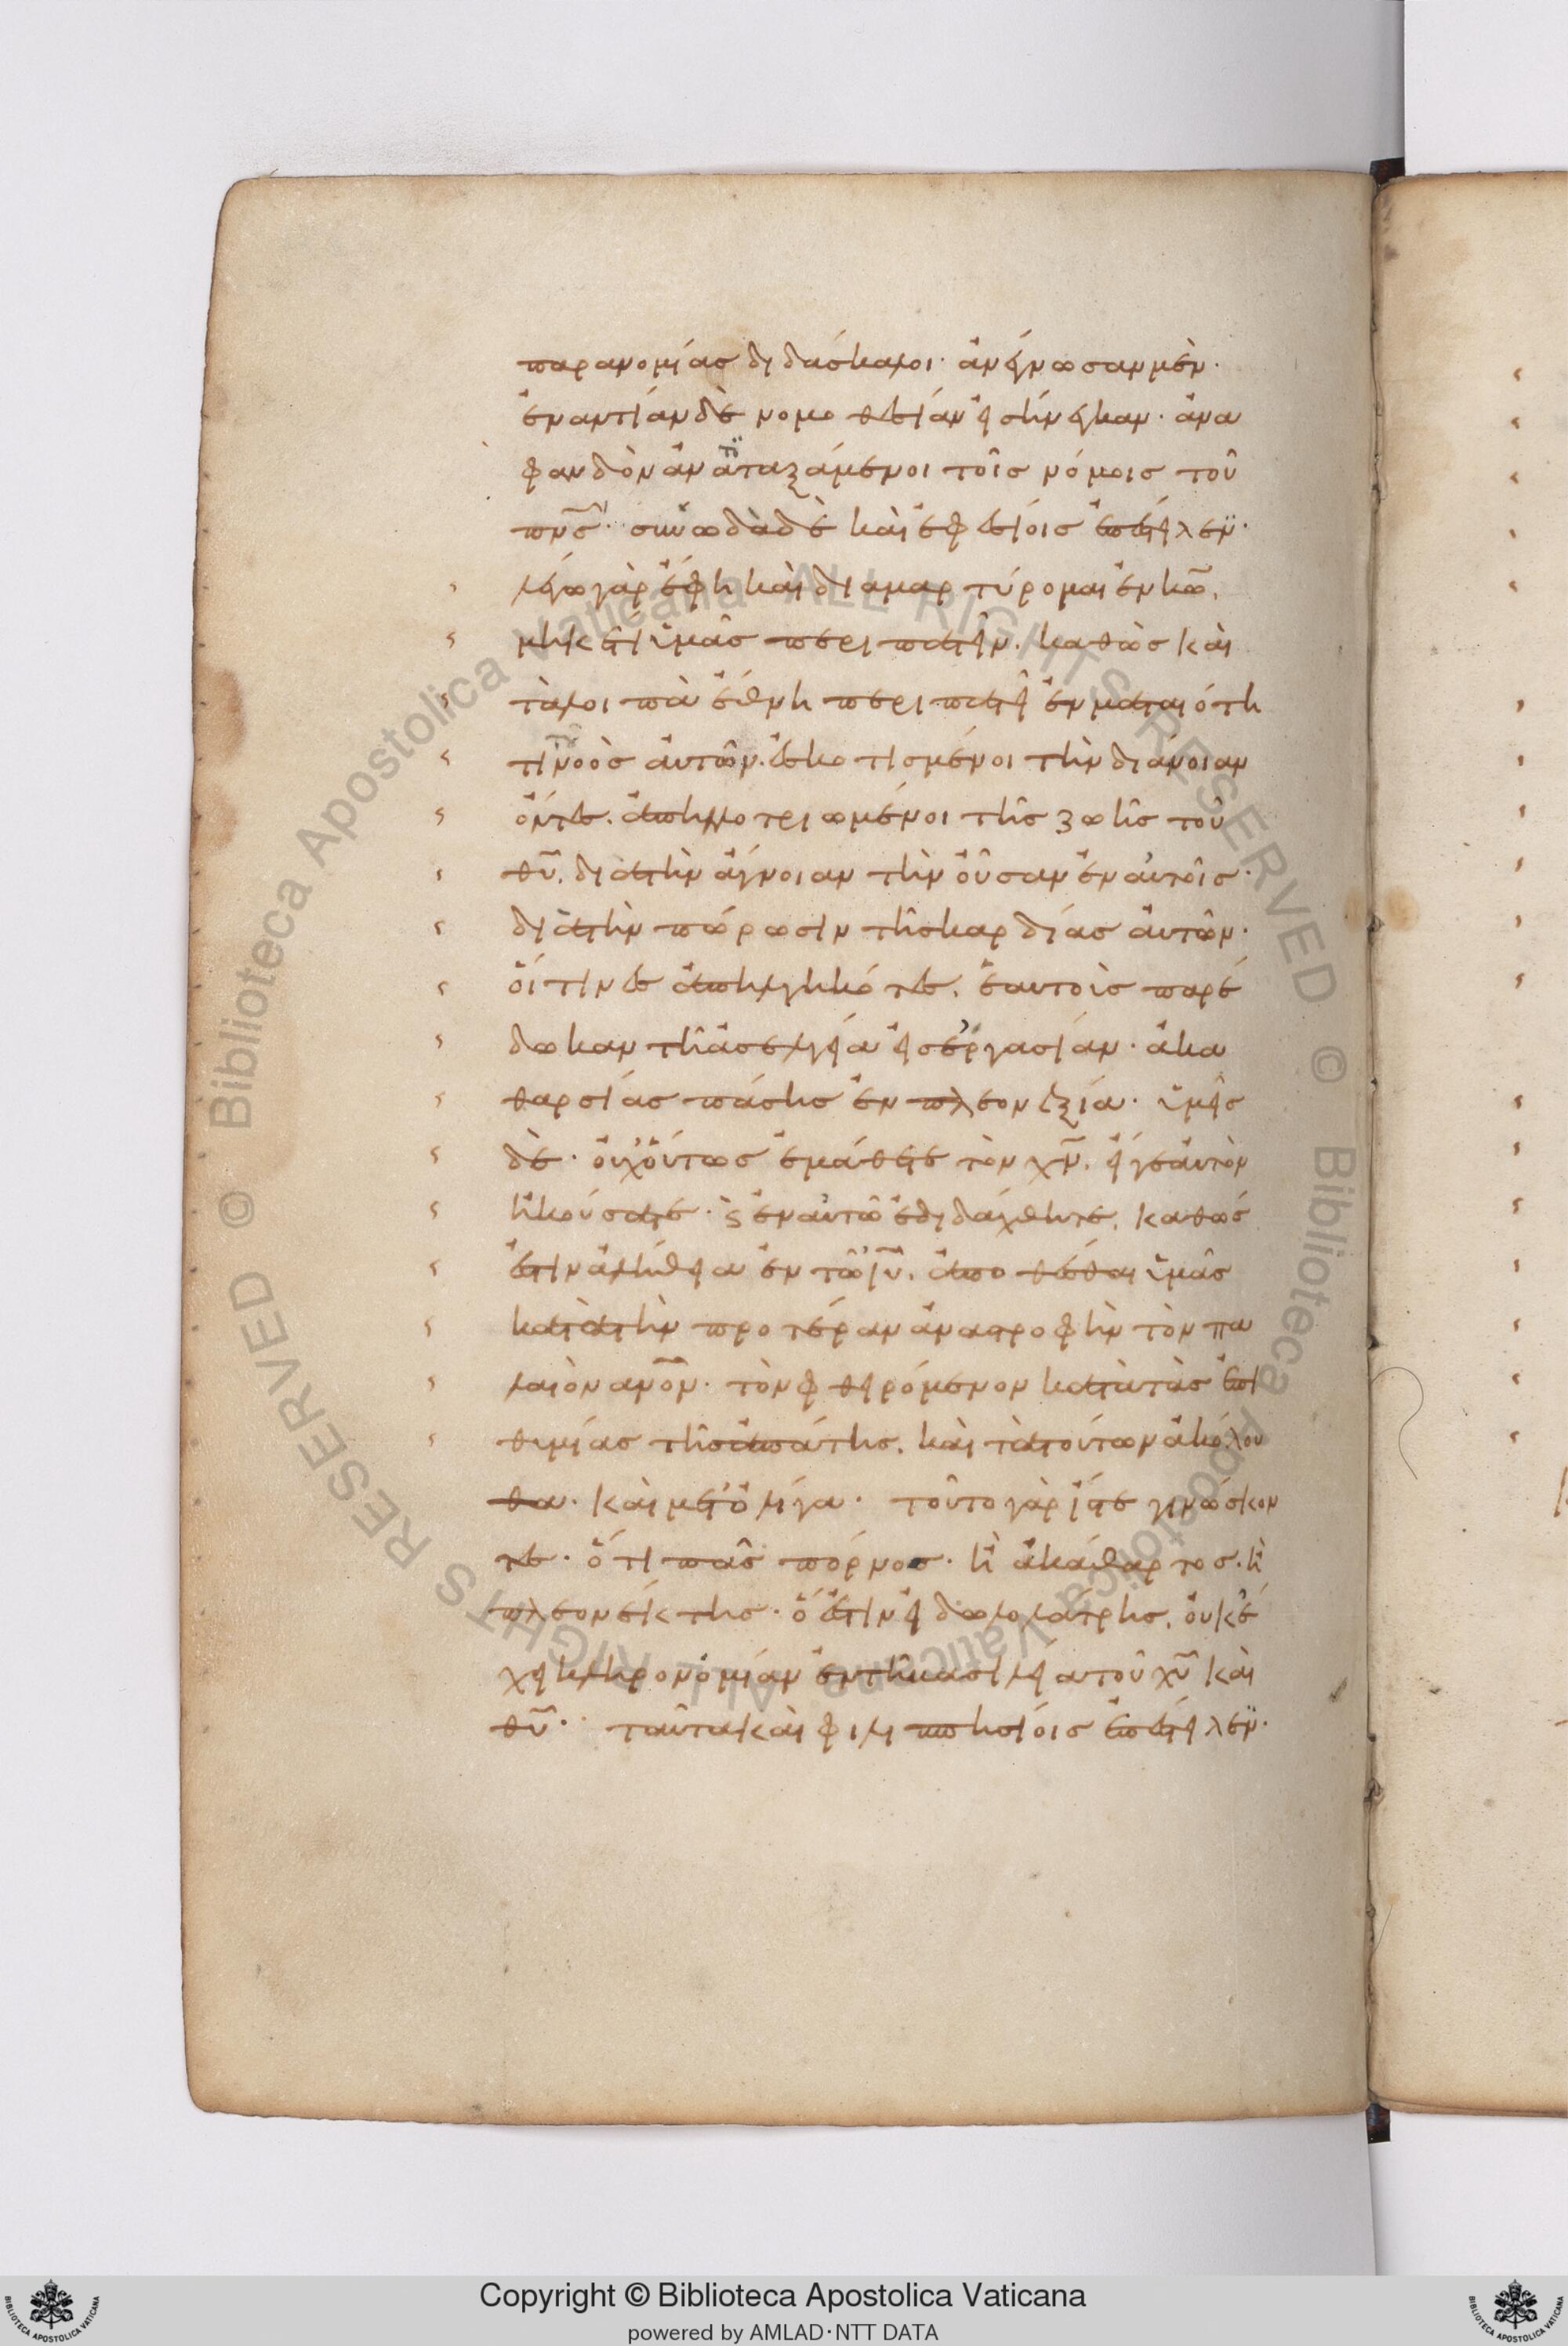 παρανομίας διδάσκαλοι· ἀνέγνωσαν μὲν·
ἐναντίαν δὲ νομοθεσίαν εἰσήνεγκαν· ἀνα
φανδὸν ἀντιταξάμενοι τοῖς νόμοις τοῦ
πνς· συνωδὰ δὲ καὶ ἐφεσίοις ἐπέστειλεν·
λέγω γὰρ ἔφη καὶ διαμαρτύρομαι ἐν κω.
μηκέτι ὑμᾶς περιπατεῖν. καθὼς καὶ
τὰ λοιπὰ ἔθνη περιπατεῖ ἐν ματαιότη
τι νοὸς αὐτῶν. ἐσκοτισμένοι τὴν διάνοιαν
ὄντες. ἀπηλλοτριωμένοι τῆς ζωῆς τοῦ
θυ. διὰ τὴν ἄγνοιαν τὴν οὖσαν ἐν αὐτοῖς·
διὰ τὴν πώρωσιν τῆς καρδίας αὐτῶν·
οἵτινες ἀπηλγηκότες. ἑαυτοὺς παρέ
δωκαν τῆ ἀσελγεία εἰς ἐργασίαν· ἀκα
θαρσίας πάσης ἐν πλεονεξία· ὑμεῖς
δὲ· οὐχ οὕτως ἐμάθετε τὸν χν. εἴγε αὐτὸν
ἠκούσατε· ϛ ἐν αὐτῶ ἐδιδάχθητε. καθώς
ἐστιν ἀλήθεια ἐν τῶ ιυ. ἀποθέσθαι ὑμᾶς
κατὰ τὴν προτέραν ἀναστροφὴν τὸν πα
λαιὸν ανον· τὸν φθειρόμενον κατὰ τὰς ἐπι
θυμίας τῆς ἀπάτης. καὶ τὰ τούτων ἀκόλου
θα· καὶ μετ' ὀλίγα· τοῦτο γὰρ ἴστε γινώσκον
τες· ὅτι πᾶς πόρνος· ἢ ἀκάθαρτος. ἢ
πλεονέκτης· ὅ ἐστιν εἰδωλολάτρης. οὐκ ἔ
χει κληρονομίαν ἐν τῆ βασιλεία τοῦ χυ καὶ
θυ· ταῦτα καὶ φιλιππησίοις ἐπέστειλεν·